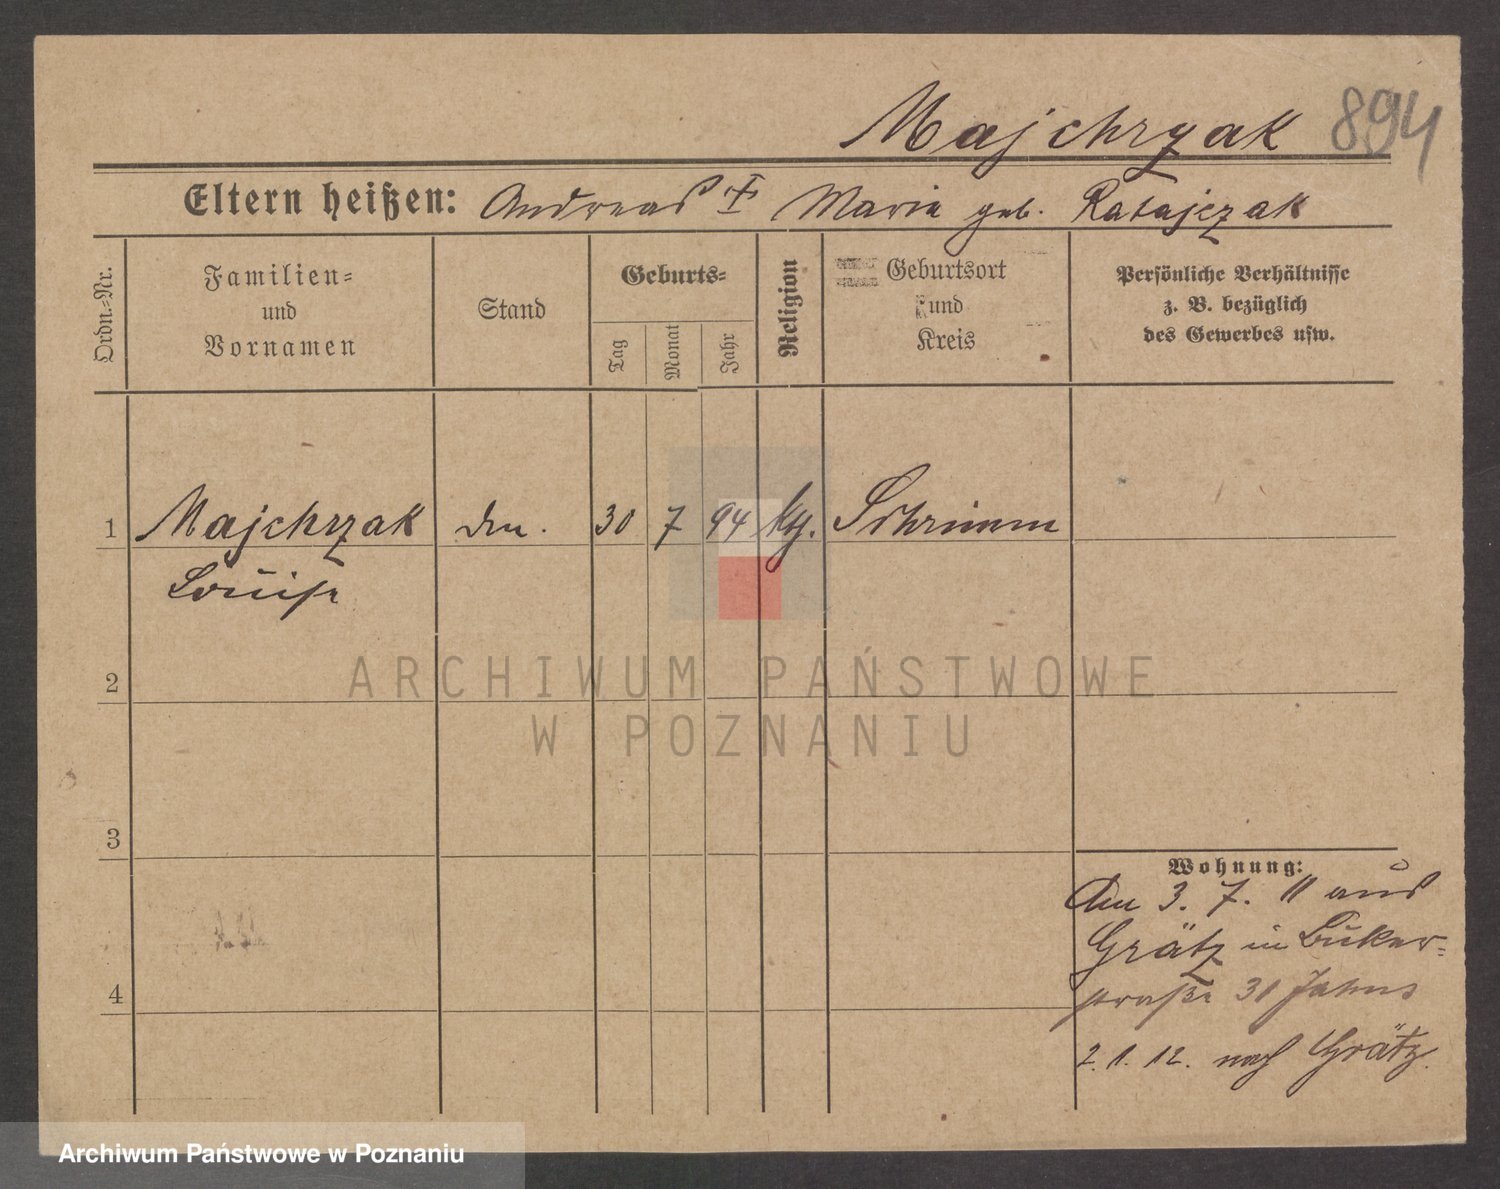 Majchrzak 894
Eltern heißen: Andreas ☩ Maria geb. Ratajczak
Ordn.-Nr.
Familien-
und
Vornamen
Stand
Geburts-
Tag
Monat
Jahr
Religion
Geburtsort
und
Kreis
Persönliche Verhältnisse
z. B. bezüglich
des Gewerbes usw.
1 Majchrzak 30 7 94 kth. Schrimm
Louise
2
ARCHIWUM PAŃSTWOWE
W POZNANIU
3
Wohnung:
Am 3. 7. 11 aus
Grätz in Buker-
4
straße 31
2. 1. 12. nach Grätz.
Archiwum Państwowe w Poznaniu